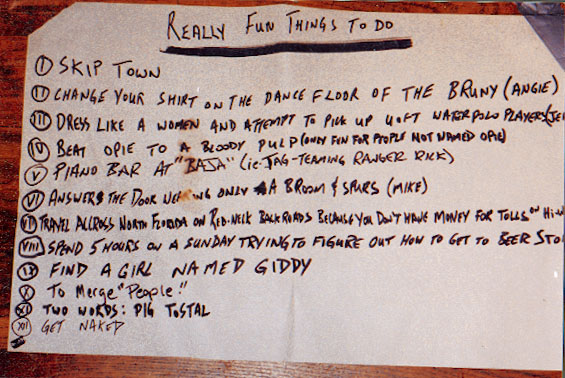 REALLY FUN THINGS TO DO
I SKIP TOWN
II CHANGE YOUR SHIRT ON THE DANCE FLOOR OF THE BRUNY (ANGIE)
III DRESS LIKE A WOMEN AND ATTEMPT TO PICK UP UOFT WATERPOLO PLAYERS
IV BEAT OPIE TO A BLOODY PULP (ONLY FUN FOR PEOPLE NOT NAMED OPIE)
V PIANO BAR AT "BAJA" (ie. TAG-TEAMING RANGER RICK)
VI ANSWER THE DOOR ONLY A BROOM & SPURS (MIKE)
VII TRAVEL ALLCROSS NORTH FLORIDA ON RED-NECK BACKROADS BECAUSE YOU DON'T HAVE MONEY FOR TOLLS ON
VIII SPEND 5 HOURS ON A SUNDAY TRYING TO FIGURE OUT HOW TO GET TO BEER
IX FIND A GIRL NAMED GIDDY
X To Merge "People!"
XI TWO WORDS: PIG TOSTAL
XII GET NAKED